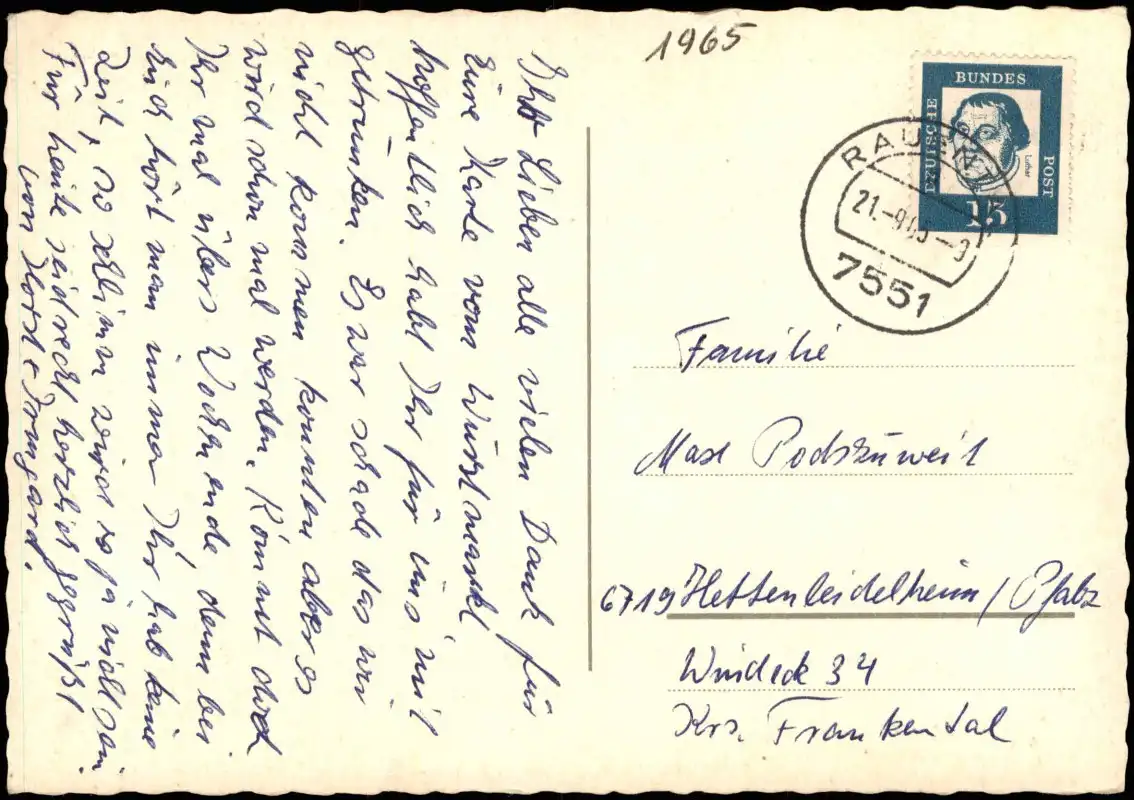 1965
DEUTSCHE
BUNDES
POST
Luther
15
RAUENTAL
21.-9.65-9
7551
Ihr Lieben alle vielen Dank für
Eure Karte vom Wurstmarkt
hoffentlich habt Ihr für uns mit
getrunken. Es war schade das wir
nicht kommen konnten aber es
wird schon mal werden. Kommt doch
Ihr mal übers Wochenende, denn bei
Euch hört man immer Ihr hab keine
Zeit, so schlimm wird es ja nicht sein.
Für heute seid recht herzlich gegrüßt
von Horst + Irmgard.
Familie
Max Podszuweit
6719 Hettenleidelheim / Pfalz
Windeck 34
Krs. Frankental